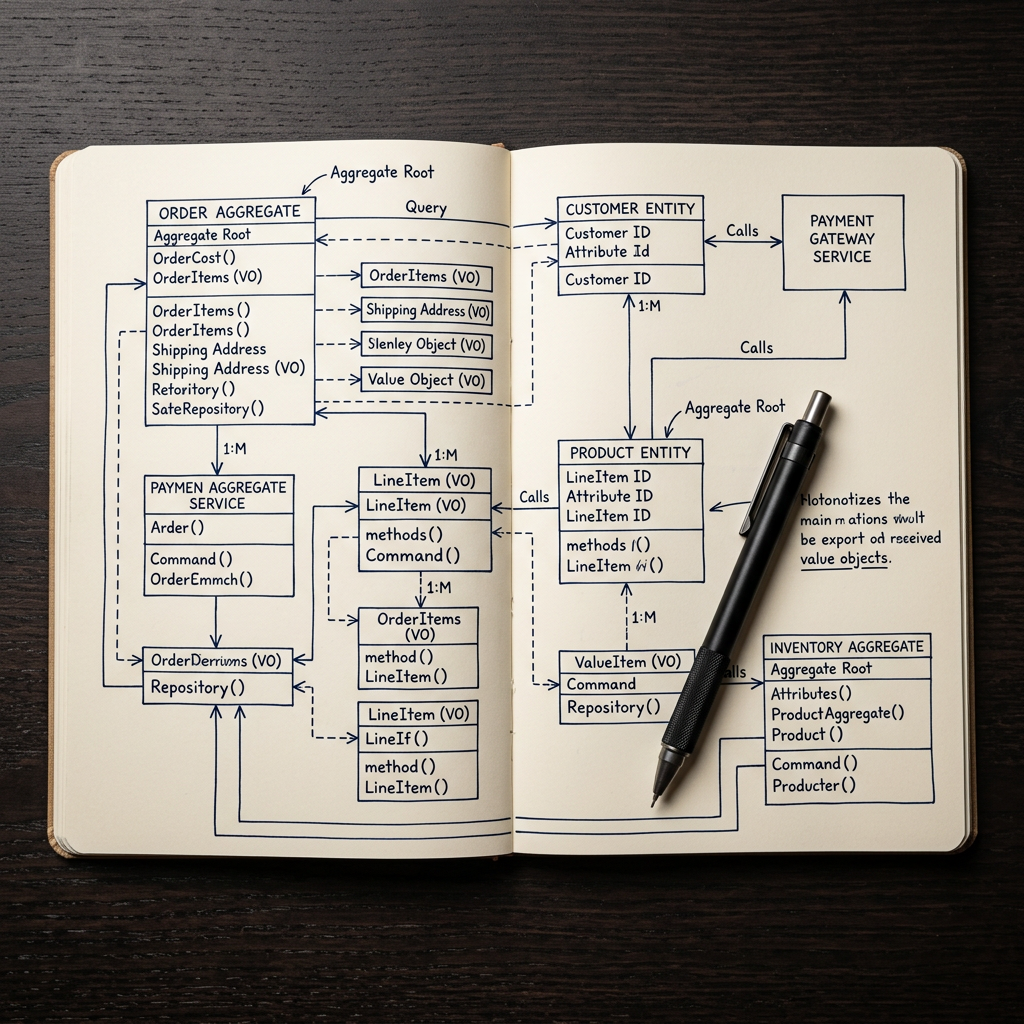 Aggregate Root
ORDER AGGREGATE
Aggregate Root
OrderCost()
OrderItems (VO)
OrderItems()
OrderItems()
Shipping Address
Shipping Address (VO)
Reforitory()
SateRepository()
Query
OrderItems (VO)
Shipping Address (VO)
Slenley Object (VO)
Value Object (VO)
1:M
1:M
PAYMEN AGGREGATE
SERVICE
Arder()
Command()
OrderEmmch()
LineItem (VO)
LineItem (VO)
methods()
Command()
1:M
OrderItems
(VO)
method()
LineItem()
(VO)
Repository()
LineItem (VO)
LineIf()
method()
LineItem()
CUSTOMER ENTITY
Customer ID
Attribute Id
Customer ID
Calls
PAYMENT
GATEWAY
SERVICE
1:M
Calls
Aggregate Root
PRODUCT ENTITY
LineItem ID
Attribute ID
LineItem ID
methods ()
LineItem ()
Calls
the
main
be export od received
value objects.
1:M
ValueItem (VO)
Command
Repository()
INVENTORY AGGREGATE
Aggregate Root
Attributes()
ProductAggregate()
Product ()
Command()
Producter()